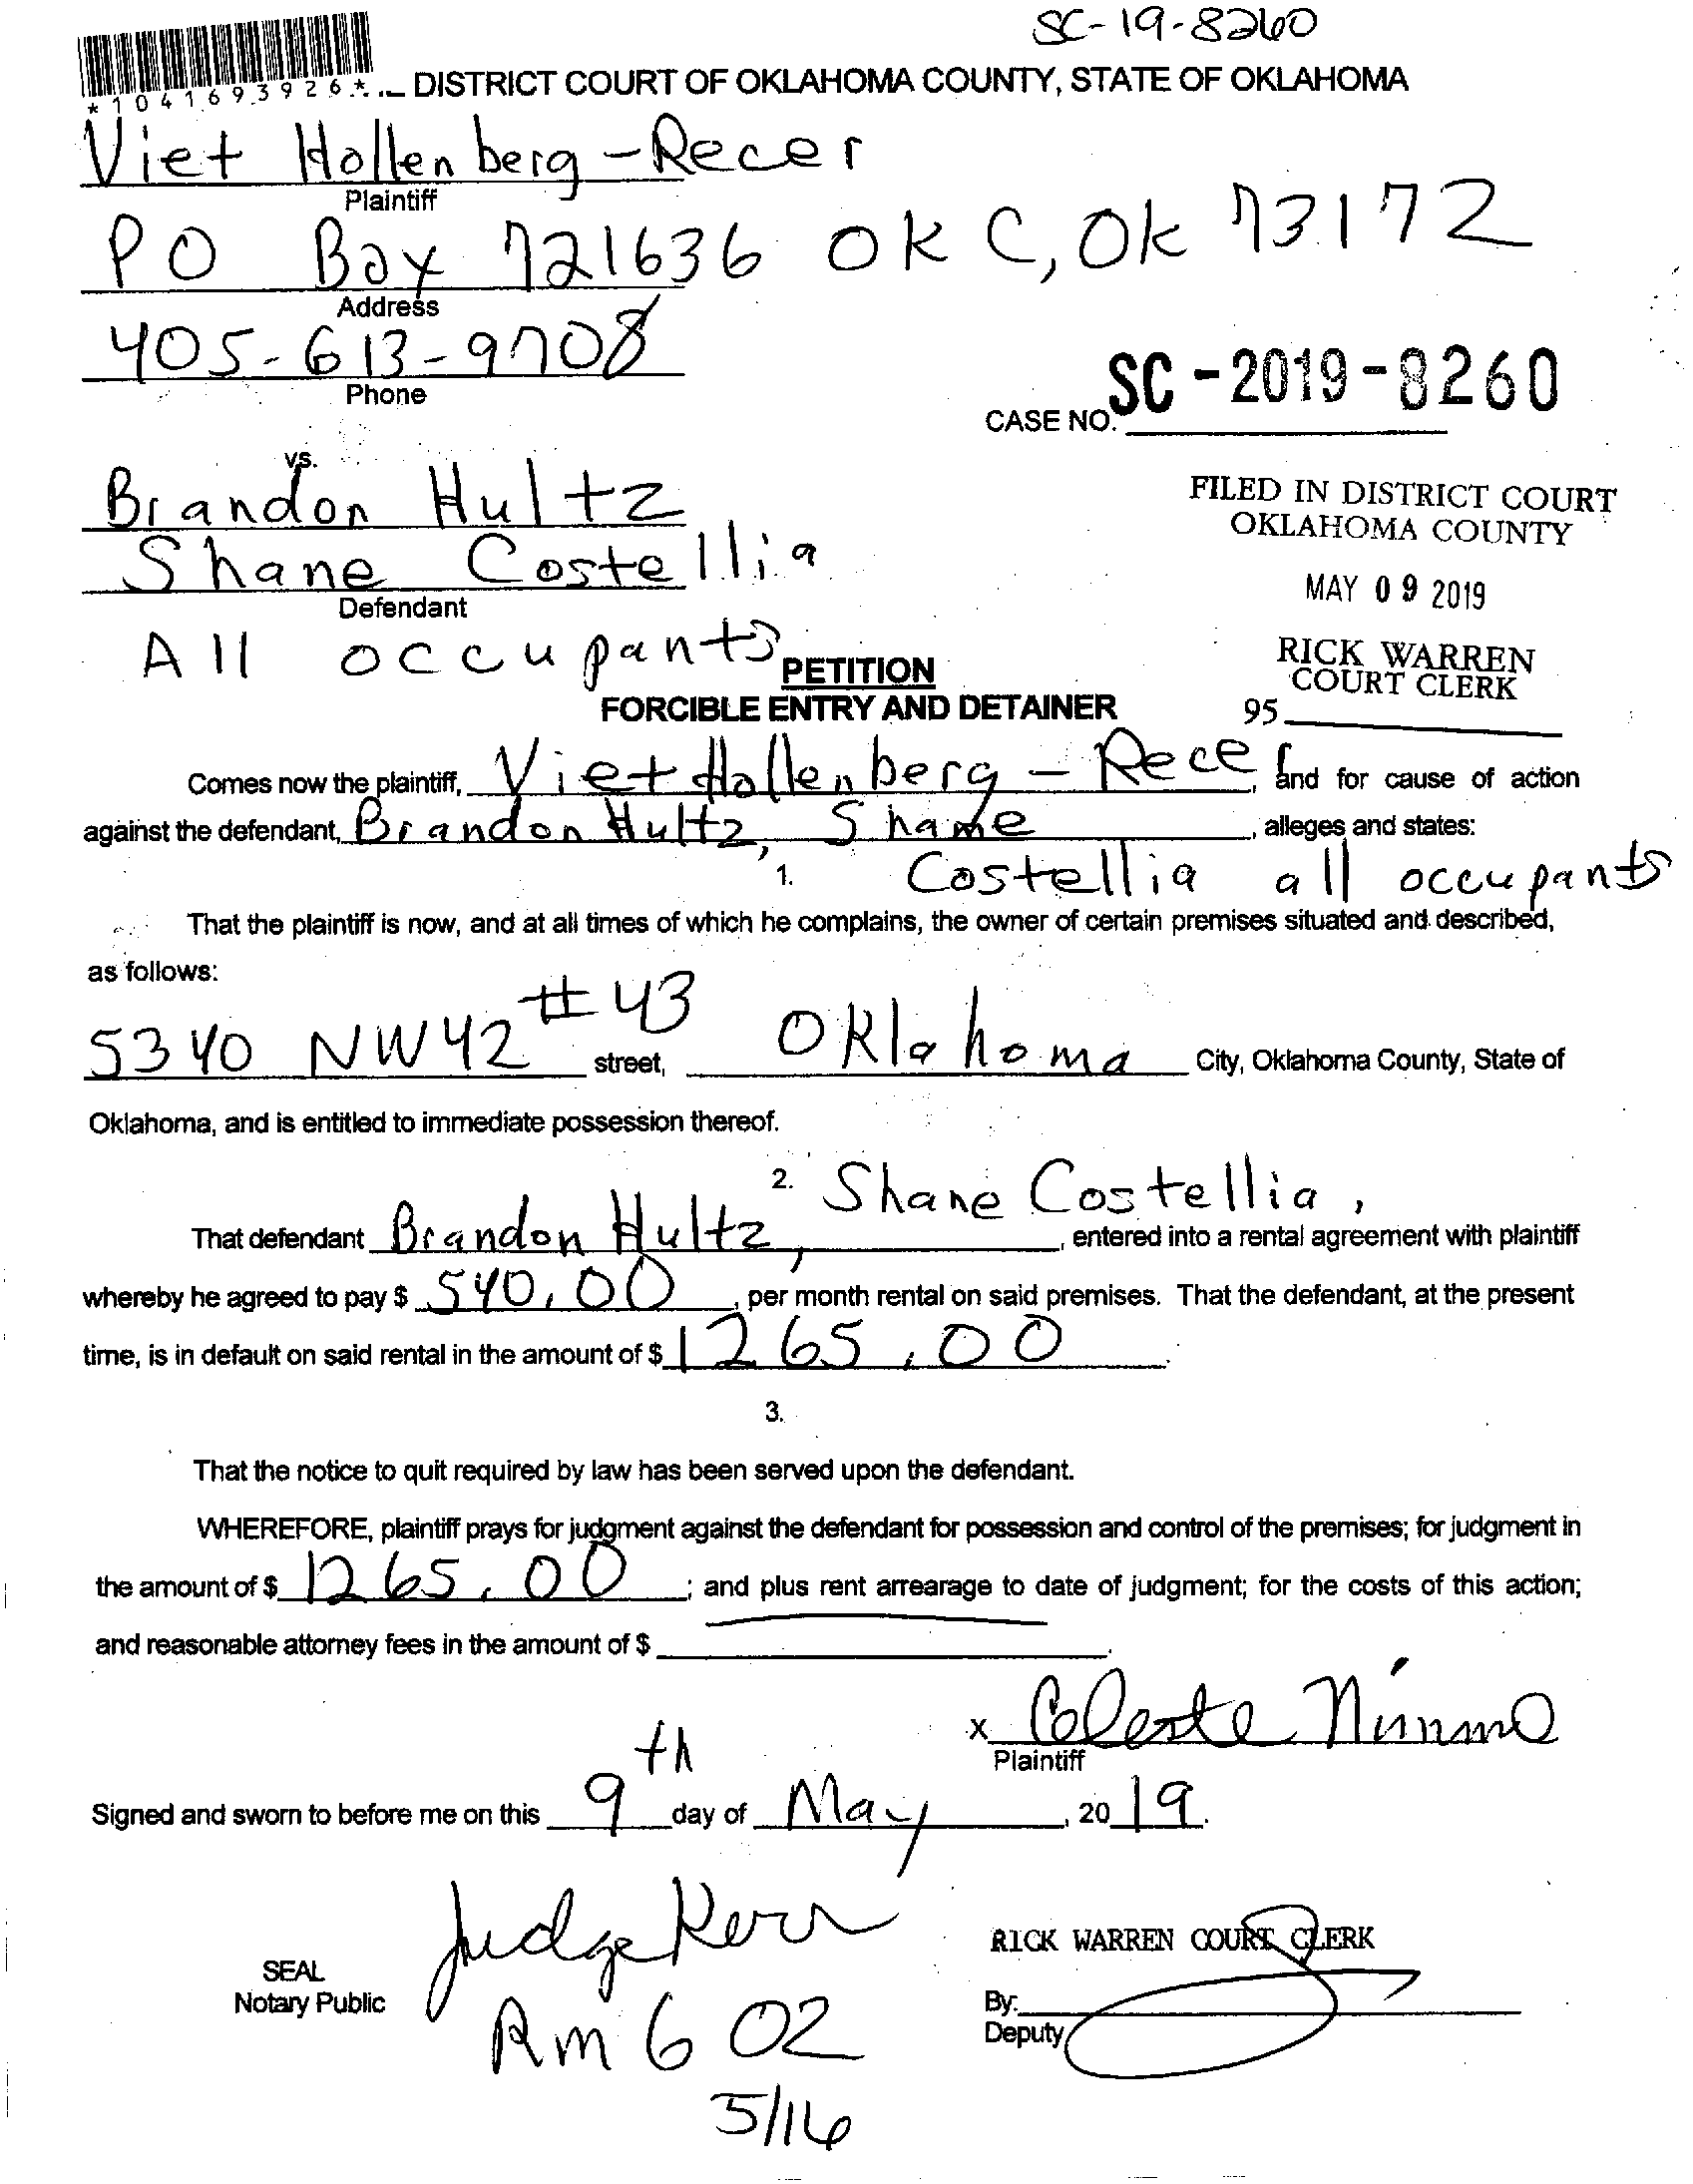 SC-19-8260
*1041693926*
DISTRICT COURT OF OKLAHOMA COUNTY, STATE OF OKLAHOMA
Viet Hollenberg-Recer
Plaintiff
PO Box 721636 OKC, OK 73172
Address
405-613-9708
Phone
CASE NO. SC-2019-8260
vs.
Brandon Hultz
Shane Costellia
Defendant
All occupants
FILED IN DISTRICT COURT
OKLAHOMA COUNTY
MAY 09 2019
RICK WARREN
COURT CLERK
95
PETITION
FORCIBLE ENTRY AND DETAINER
Comes now the plaintiff, Viet Hollenberg - Recer, and for cause of action
against the defendant, Brandon Hultz, Shane, alleges and states:
1. Costellia all occupants
That the plaintiff is now, and at all times of which he complains, the owner of certain premises situated and described,
as follows:
5340 NW 42 #43 street, Oklahoma City, Oklahoma County, State of
Oklahoma, and is entitled to immediate possession thereof.
2. Shane Costellia,
That defendant Brandon Hultz, , entered into a rental agreement with plaintiff
whereby he agreed to pay $ 540.00, per month rental on said premises. That the defendant, at the present
time, is in default on said rental in the amount of $ 1265.00.
3.
That the notice to quit required by law has been served upon the defendant.
WHEREFORE, plaintiff prays for judgment against the defendant for possession and control of the premises; for judgment in
the amount of $ 1265.00; and plus rent arrearage to date of judgment; for the costs of this action;
and reasonable attorney fees in the amount of $
x Celeste Nimmo
Plaintiff
Signed and sworn to before me on this 9th day of May, 2019.
Judge Kerr
RICK WARREN COURT CLERK
SEAL
Notary Public
By:
Deputy
Rm 602
5/16